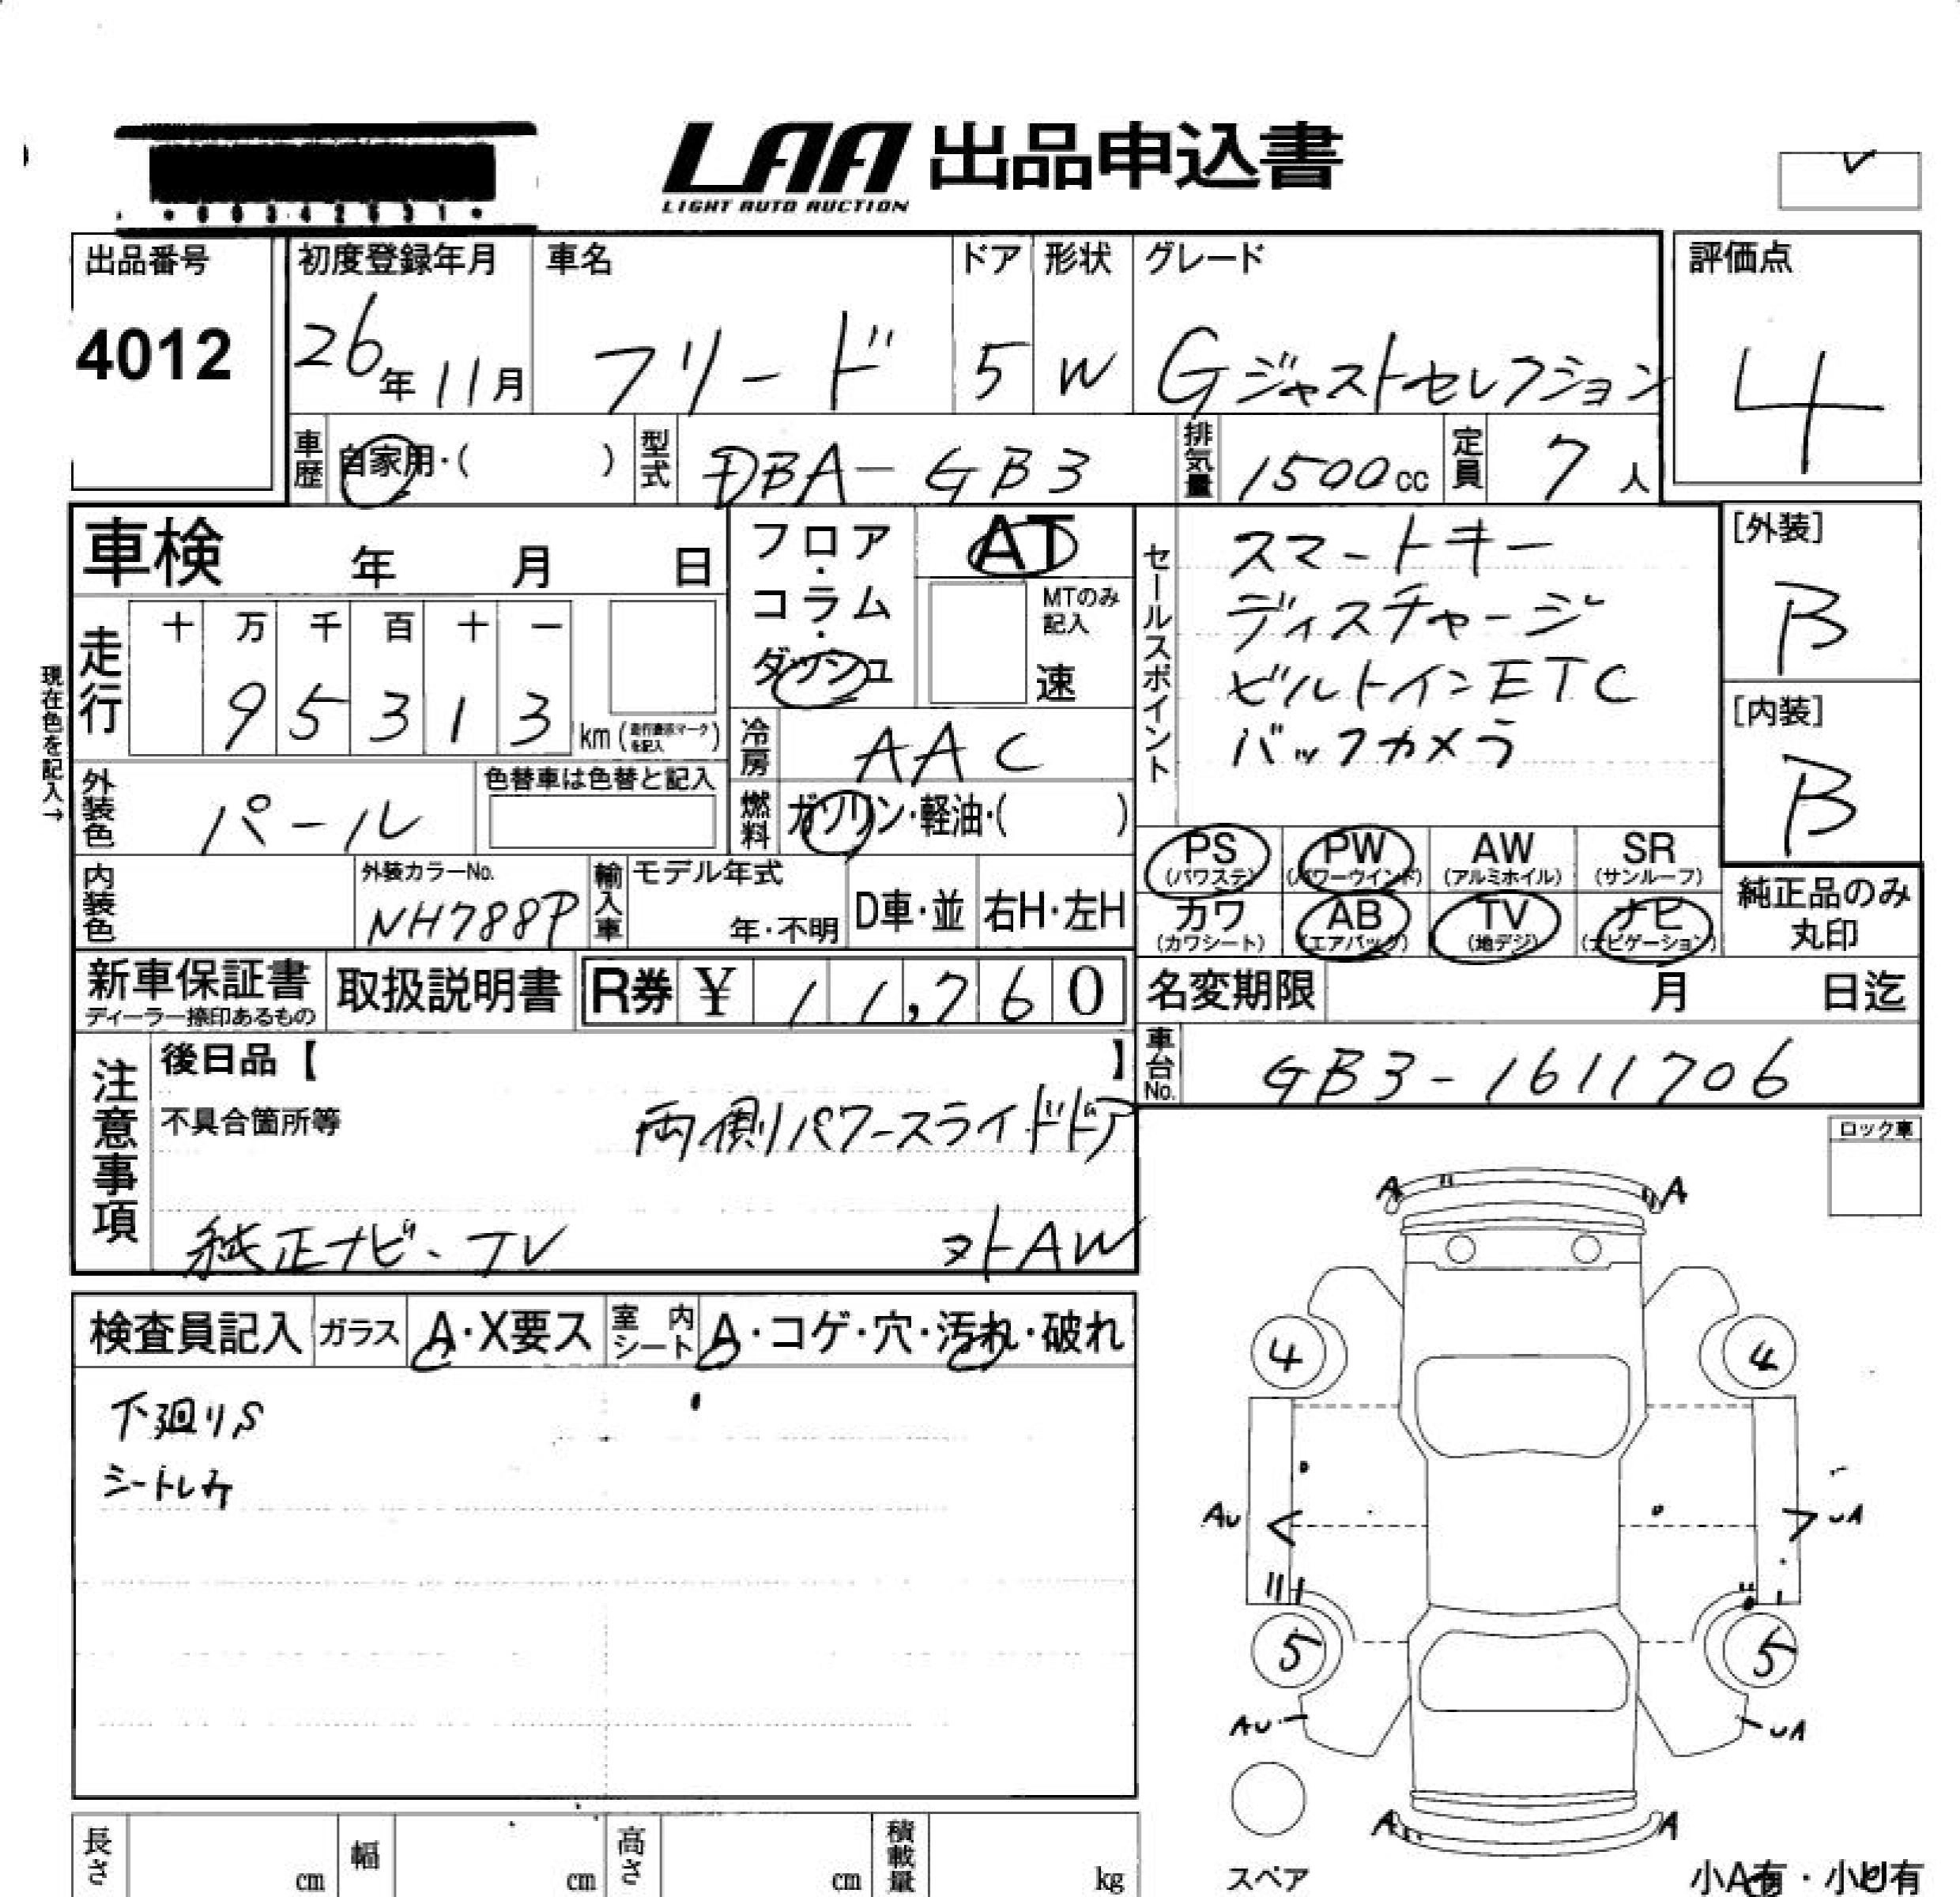 LAA 出品申込書
LIGHT AUTO AUCTION
出品番号
4012
初度登録年月
26年11月
車名
フリード
ドア
5
形状
W
グレード
Gジャストセレクション
評価点
4
車歴 自家用・( )
型式 DBA-GB3
排気量 1500cc
定員 7人
車検 年 月 日
フロア・コラム・ダッシュ
AT
MTのみ記入
速
セールスポイント
スマートキー
ディスチャージ
ビルトインETC
バックカメラ
[外装]
B
[内装]
B
現在色を記入→
走行
十 万 千 百 十 一
95313 km(
を記入 )
冷房 AAC
外装色 パール
色替車は色替と記入
燃料 ガソリン・軽油・( )
PS (パワステ) PW (パワーウインド) AW (アルミホイル) SR (サンルーフ)
カワ (カワシート) AB (エアバック) TV (地デジ) ナビ (ナビゲーション)
純正品のみ
丸印
内装色
外装カラーNo.
NH788P
輸入車
モデル年式
年・不明
D車・並
右H・左H
新車保証書
ディーラー捺印あるもの
取扱説明書
R券 ¥ 11,760
名変期限 月 日迄
車台No. GB3-1611706
注意事項
後日品【 】
不具合箇所等
両側パワースライドドア
純正ナビ・TV
ヌトAW
ロック車
検査員記入 ガラス A・X要ス 室内シート A・コゲ・穴・汚れ・破れ
下廻りS
シートしみ
A A
4 4
AU UA
5 5
AU UA
A A
スペア
小A有・小U有
長さ cm
幅 cm
高さ cm
積載量 kg